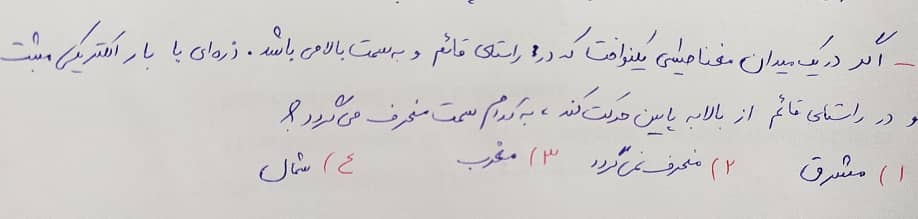 - اگر در یک میدان مغناطیسی یکنواخت که در راستای قائم و به سمت بالا می باشد. ذره‌ای با بار الکتریکی مثبت
و در راستای قائم از بالا به پایین حرکت کند، به کدام سمت منحرف می گردد؟
۱) مشرق ۲) منحرف نمی گردد ۳) مغرب ۴) شمال